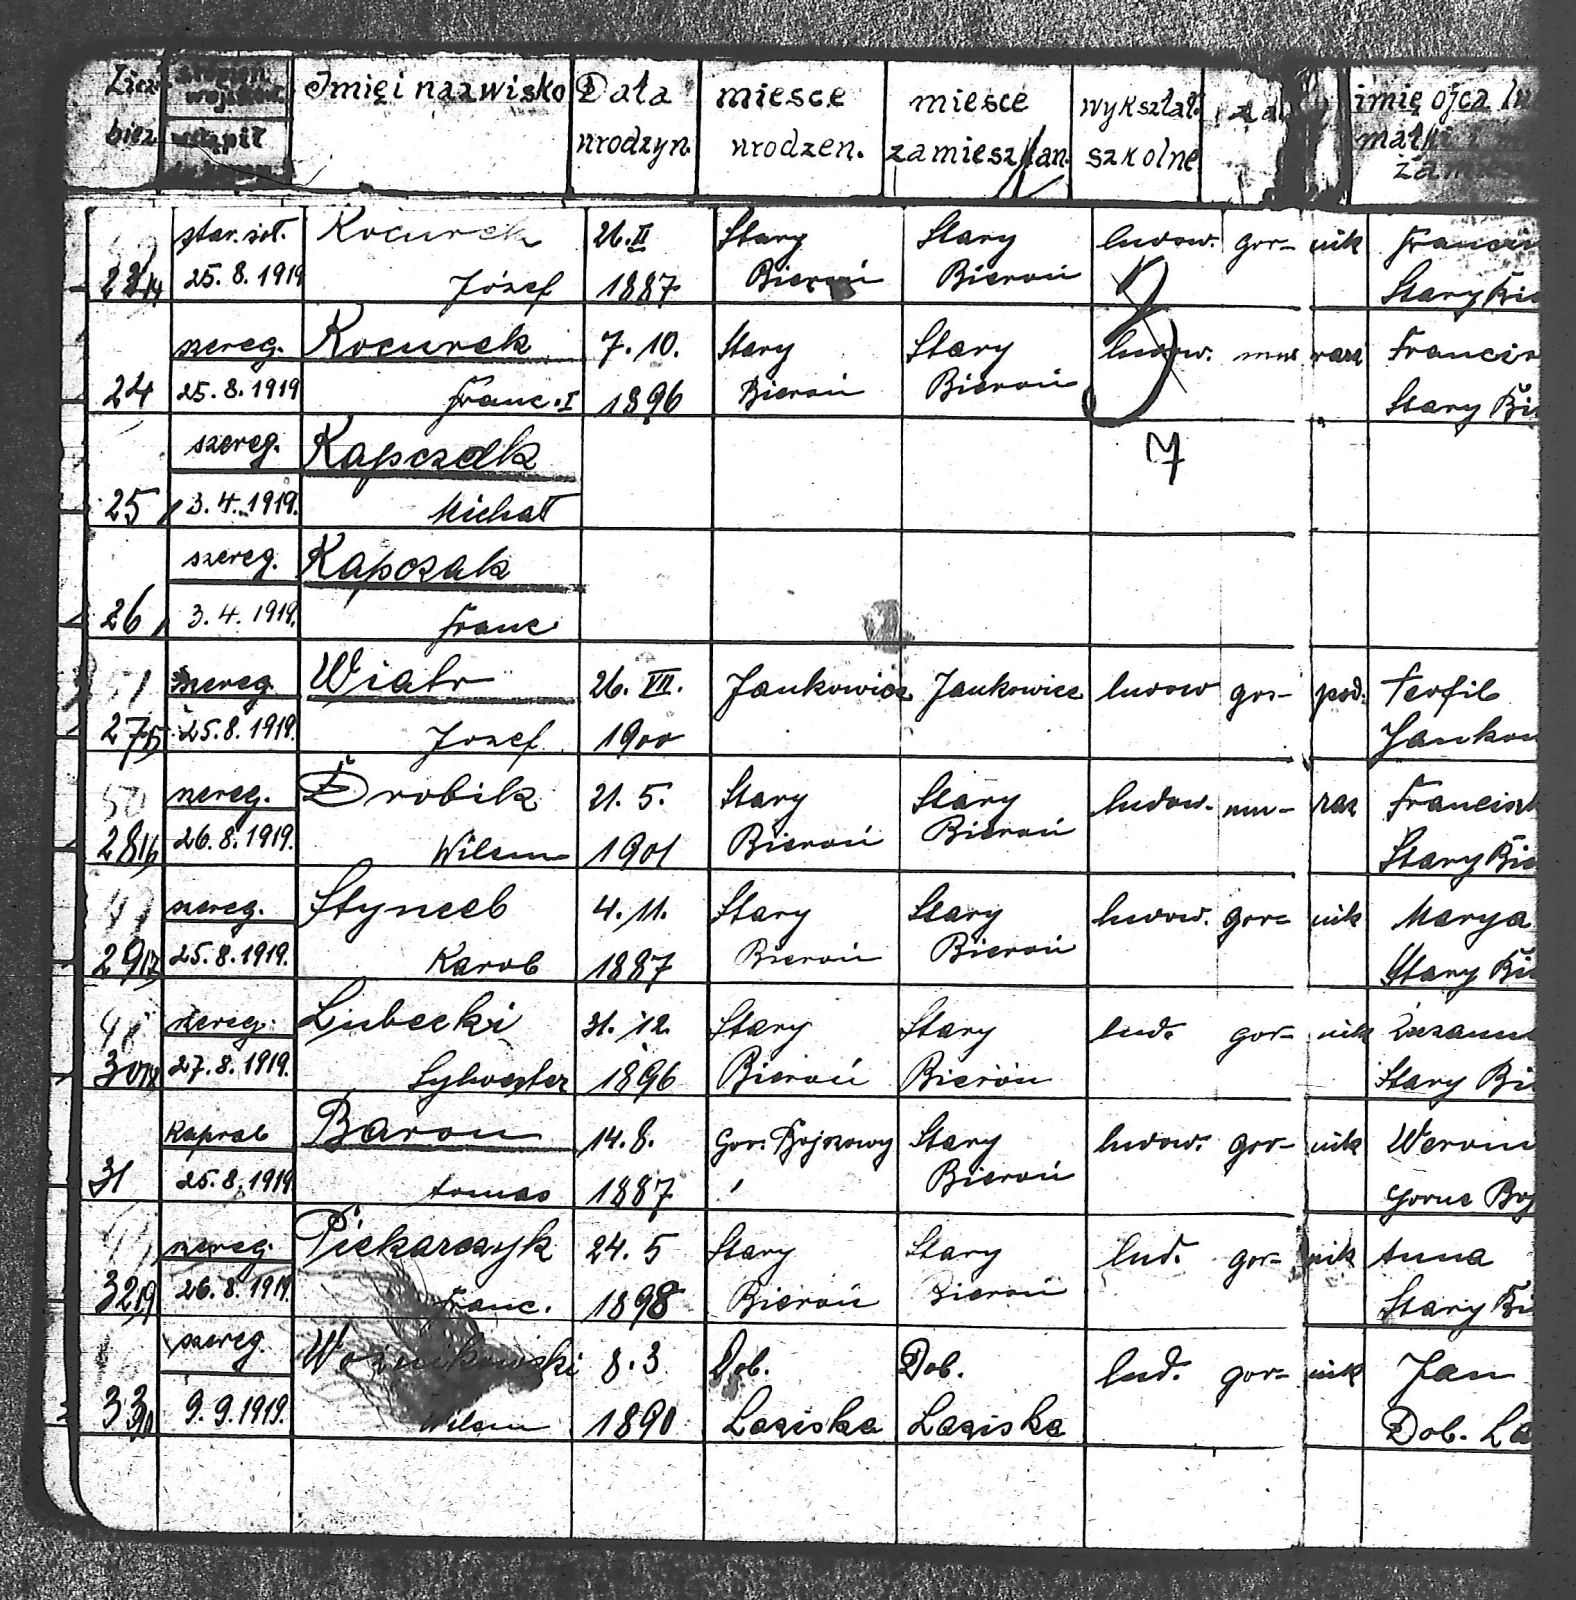 Licz. Imię i nazwisko Data miesce miesce wykształ.
bież. wstąpił urodzyn. urodzen. zamieszkan. szkolne
imię ojca
matki
star. żoł. Kocurek 26. II Stary Stary ludow. gor- nik
25. 8. 1919 Józef 1887 Bieruń Bieruń Stary
szereg. Kocurek 7. 10. Stary Stary ludow. mu- rarz
24 25. 8. 1919 Franc. I 1896 Bieruń Bieruń Stary
7
szereg. Kapczak
25 3. 4. 1919. Michał
szereg. Kapczak
26 3. 4. 1919. Franc
szereg. Wiatr 26. VII. Jankowice Jankowice ludow gos- pod. Teofil
27 25. 8. 1919. Jozef 1900
szereg. Drobik 21. 5. Stary Stary ludow. mu- rarz
28 26. 8. 1919. Wilem 1901 Bieruń Bieruń Stary
szereg. 4. 11. Stary Stary ludow. gor- nik Marya
29 25. 8. 1919. Karol 1887 Bieruń Bieruń Stary
szereg. Lubecki 31. 12. Stary Stary lud. gor- nik
30 27. 8. 1919. Sylwester 1896 Bieruń Bieruń Stary
kapral Baron 14. 8. Gor. Bojszowy Stary ludow. gor- nik
31 25. 8. 1919 Tomas 1887 Bieruń Gorne
szereg. Piekarczyk 24. 5 Stary Stary lud. gor- nik Anna
32 26. 8. 1919. Franc. 1898 Bieruń Bieruń Stary
szereg. Woźnikowski 8. 3 Dob. Dob. lud. gor- nik Jan
33 9. 9. 1919. Wilem 1890 Laziska Laziska Dob.